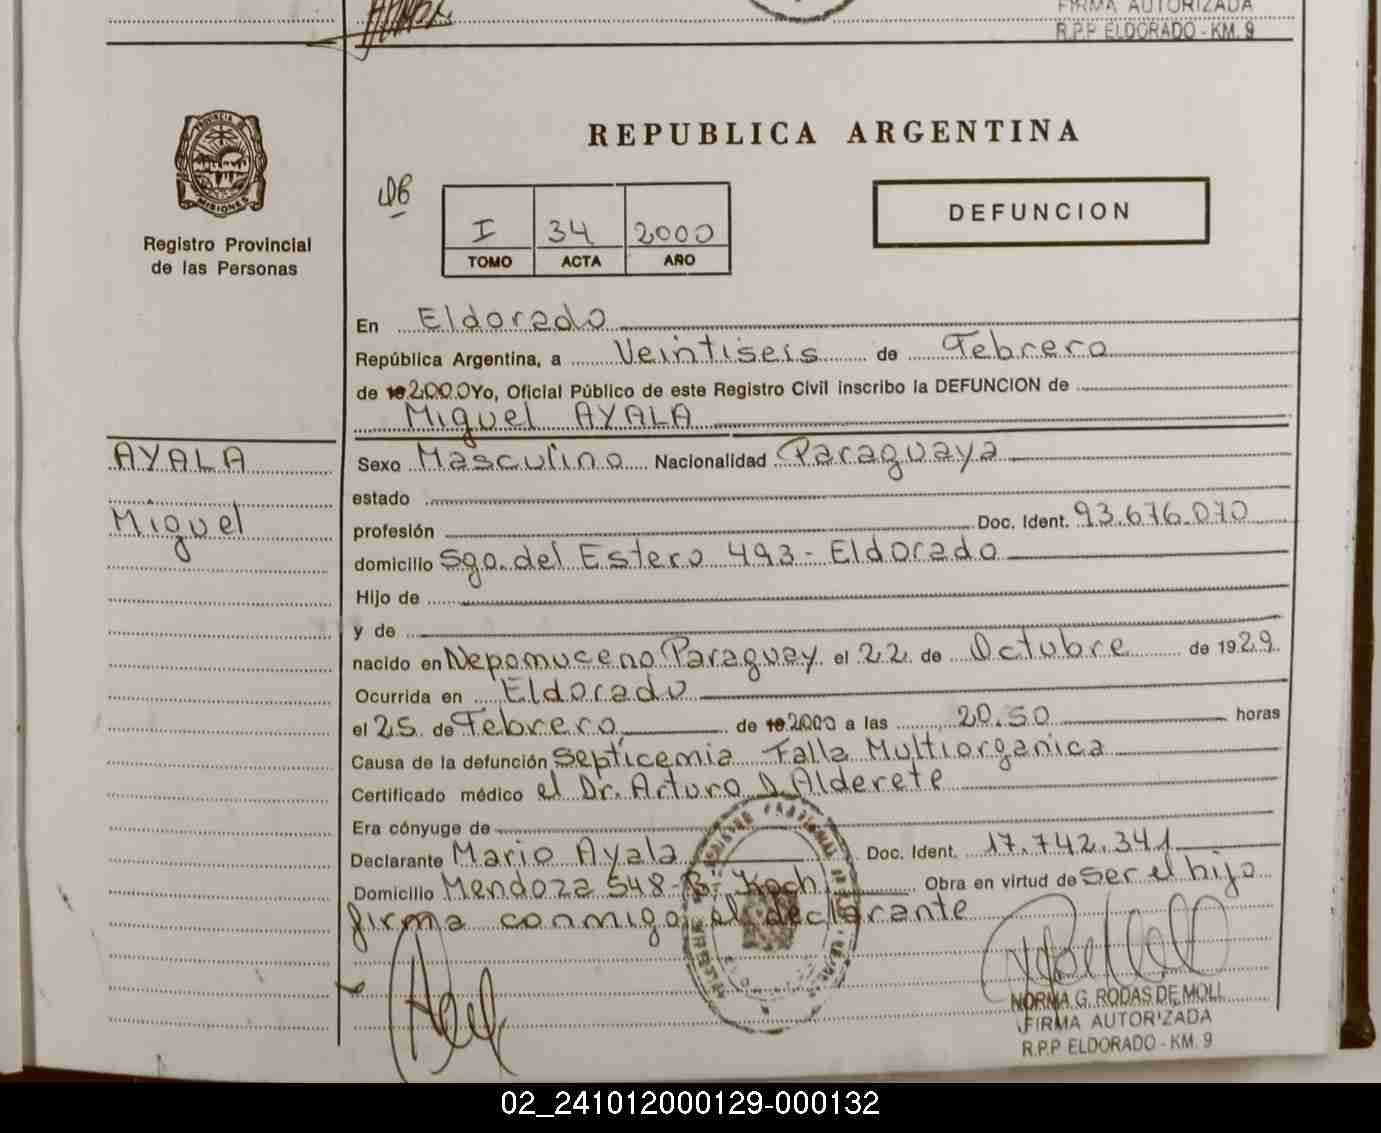 FIRMA AUTORIZADA
R.P.P ELDORADO - KM. 9
PROVINCIA DE
MISIONES
Registro Provincial
de las Personas
REPUBLICA ARGENTINA
I 34 2000
TOMO ACTA AÑO
DEFUNCION
En Eldorado
República Argentina, a Veintiseis de Febrero
de 192000 Yo, Oficial Público de este Registro Civil inscribo la DEFUNCION de
Miguel AYALA
AYALA
Miguel
Sexo Masculino Nacionalidad Paraguaya
estado
profesión Doc. Ident. 93.676.070
domicilio Sgo. del Estero 493 - Eldorado
Hijo de
y de
nacido en Nepomuceno Paraguay el 22 de Octubre de 1929
Ocurrida en Eldorado
el 25 de Febrero de 192000 a las 20.50 horas
Causa de la defunción Septicemia Falla Multiorganica
Certificado médico el Dr. Arturo D. Alderete
Era cónyuge de
Declarante Mario Ayala Doc. Ident. 17.742.341
Domicilio Mendoza 548 - B- Koch Obra en virtud de Ser el hijo
firma conmigo el declarante
NORMA G. RODAS DE MOLL
FIRMA AUTORIZADA
R.P.P ELDORADO - KM. 9
02_241012000129-000132